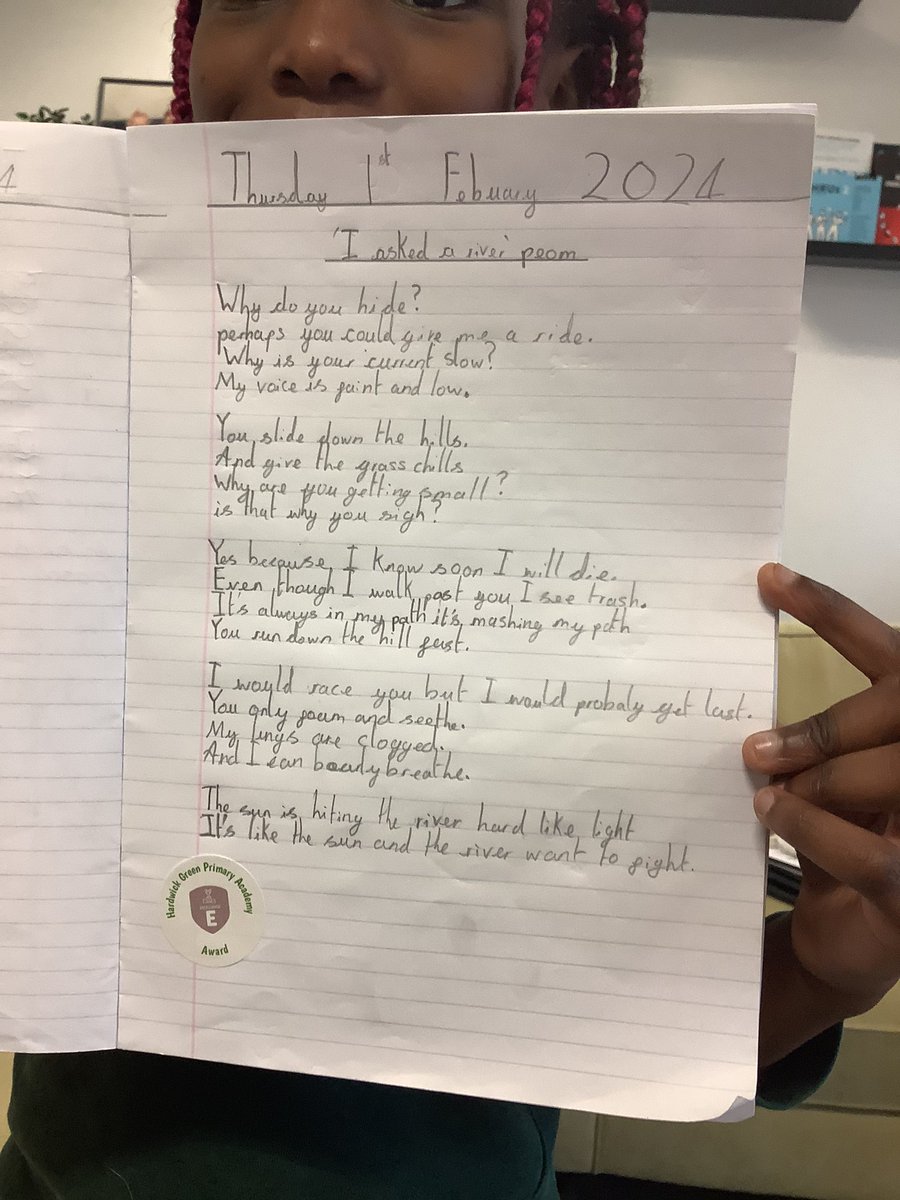 1
Thursday 1st Febuary 2024
'I asked a river' peom
Why do you hide?
perhaps you could give me a ride.
Why is your current slow?
My voice is faint and low.
You slide down the hills.
And give the grass chills
Why are you getting small?
is that why you sigh?
Yes because I know soon I will die.
Even though I walk past you I see trash.
It's always in my path it's mashing my path
You run down the hill fast.
I would race you but I would probaly get last.
You only foam and seethe.
My lungs are clogged.
And I can bearly breathe.
The sun is hiting the river hard like light
It's like the sun and the river want to fight.
Hardwick Green Primary Academy
E
Award